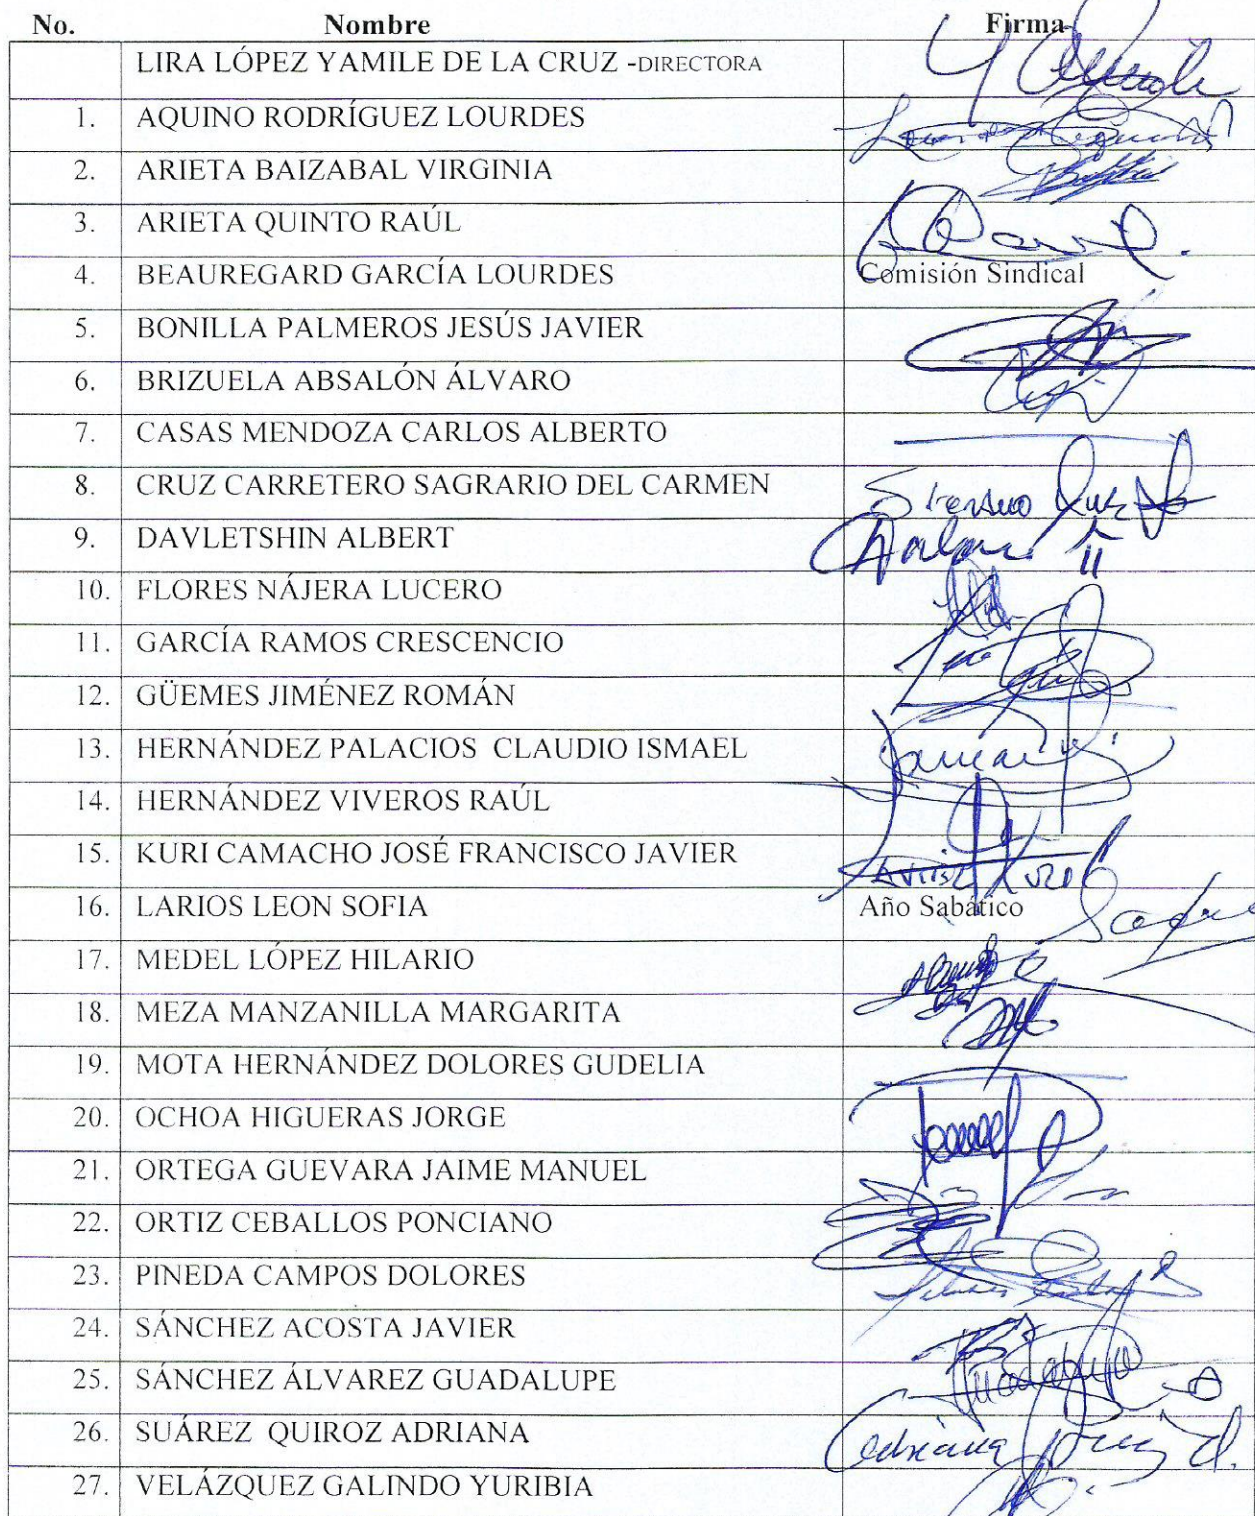 No. Nombre Firma
LIRA LÓPEZ YAMILE DE LA CRUZ -DIRECTORA
1. AQUINO RODRÍGUEZ LOURDES
2. ARIETA BAIZABAL VIRGINIA
3. ARIETA QUINTO RAÚL
4. BEAUREGARD GARCÍA LOURDES Comisión Sindical
5. BONILLA PALMEROS JESÚS JAVIER
6. BRIZUELA ABSALÓN ÁLVARO
7. CASAS MENDOZA CARLOS ALBERTO
8. CRUZ CARRETERO SAGRARIO DEL CARMEN
9. DAVLETSHIN ALBERT
10. FLORES NÁJERA LUCERO
11. GARCÍA RAMOS CRESCENCIO
12. GÜEMES JIMÉNEZ ROMÁN
13. HERNÁNDEZ PALACIOS CLAUDIO ISMAEL
14. HERNÁNDEZ VIVEROS RAÚL
15. KURI CAMACHO JOSÉ FRANCISCO JAVIER
16. LARIOS LEON SOFIA Año Sabático
17. MEDEL LÓPEZ HILARIO
18. MEZA MANZANILLA MARGARITA
19. MOTA HERNÁNDEZ DOLORES GUDELIA
20. OCHOA HIGUERAS JORGE
21. ORTEGA GUEVARA JAIME MANUEL
22. ORTIZ CEBALLOS PONCIANO
23. PINEDA CAMPOS DOLORES
24. SÁNCHEZ ACOSTA JAVIER
25. SÁNCHEZ ÁLVAREZ GUADALUPE
26. SUÁREZ QUIROZ ADRIANA
27. VELÁZQUEZ GALINDO YURIBIA